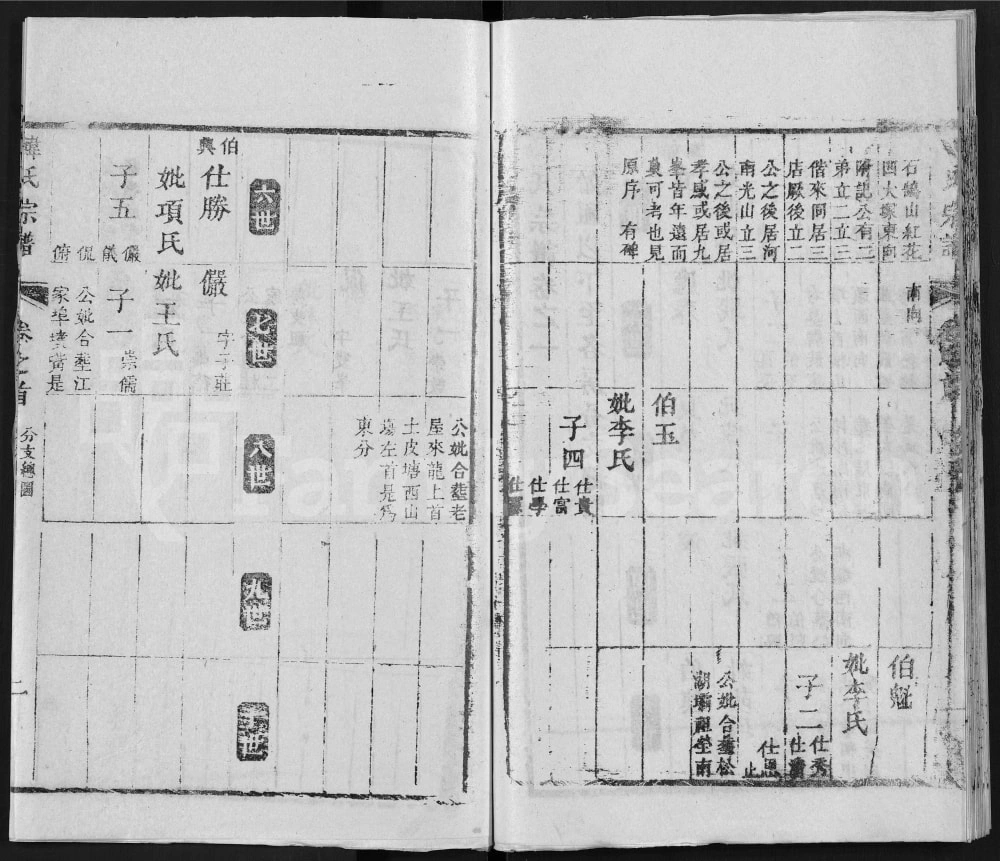 石鷂山紅花
四大塚東向
附記公有二
弟立二立三
偕來同居三
店厥後立二
公之後居河
南光山立三
公之後或居
孝感或居九
峯皆年遠而
莫可考也見
原序有碑
南向
伯玉
妣李氏
子四
仕貴
仕富
仕學
伯魁
妣李氏
子二
仕秀
仕恩
止
公妣合塟松
湖壩祖塋南
六世
七世
八世
九世
伯興
仕勝
妣項氏
子五
儼
儀
侃
俯
儼
字子莊
妣王氏
子一
崇儒
公妣合塟江
家埠墳當是
公妣合塟老
屋來龍上首
土皮塘西山
塆左首是爲
東分
韓氏宗譜
卷之首
分支總圖
二